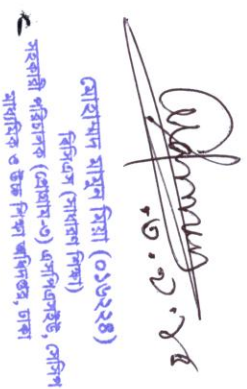 ০৩.২.২৪
মোহাম্মদ মামুন মিয়া (০১৬২২৪)
বিসিএস (সাধারণ শিক্ষা)
সহকারী পরিচালক (প্রোগ্রাম-৩) এসপিএসইউ, সেসিপ
মাধ্যমিক ও উচ্চ শিক্ষা অধিদপ্তর, ঢাকা